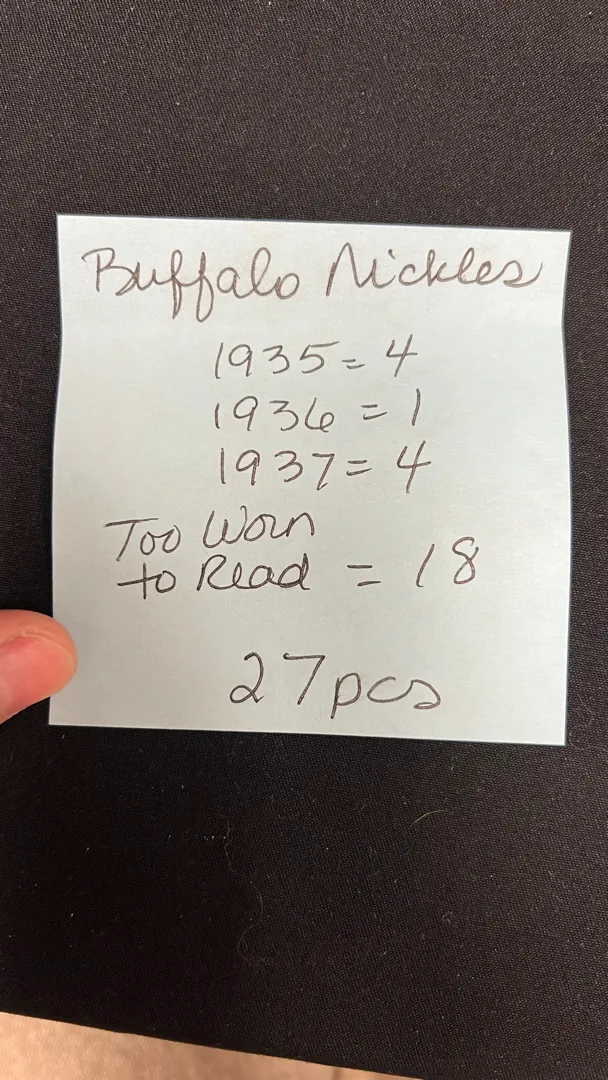 Buffalo Nickles
1935 = 4
1936 = 1
1937 = 4
Too Worn
to Read = 18
27 pcs